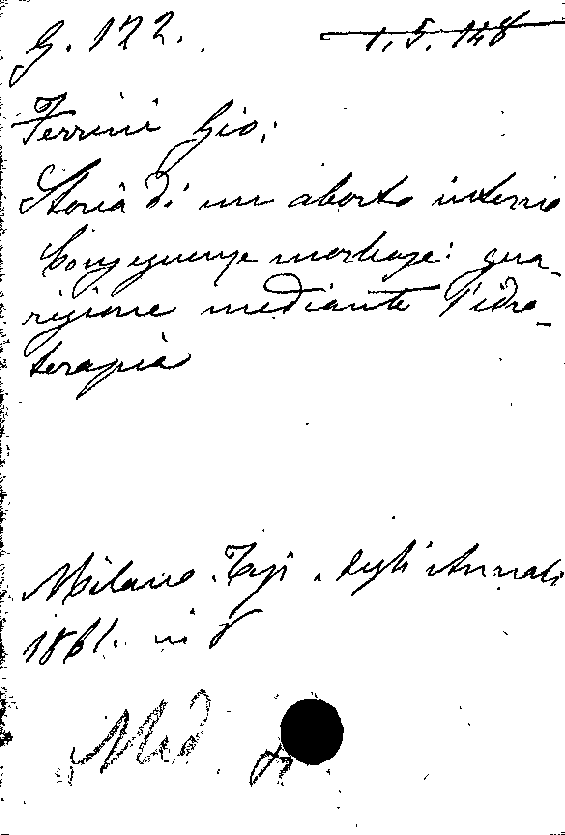 G. 122. 1.5.148
Ferrini Gio:
Storia di un aborto interno
Conseguenze morbose: gua-
rigione mediante l'idro-
terapia
Milano. Tip. degli Annali
1861. in 8
Med.